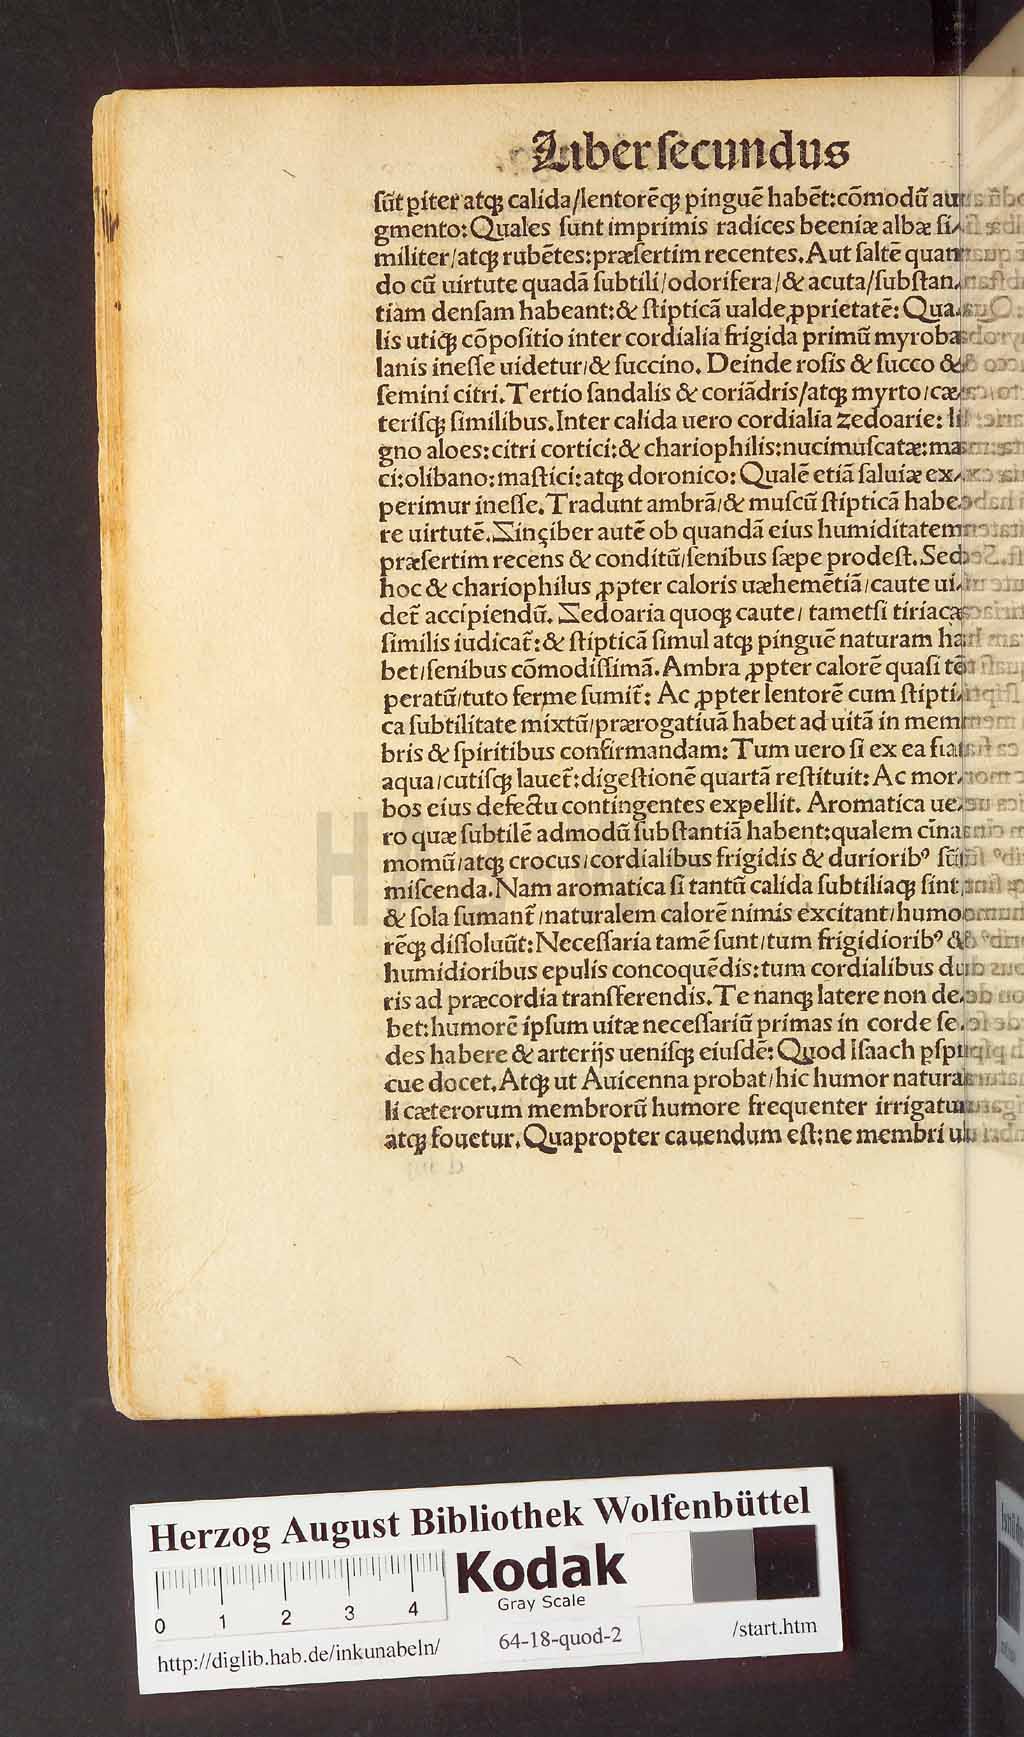 Liber secundus
sūt piter atqꝫ calida/lentorēqꝫ pinguē habēt:cōmodū au
gmento:Quales sunt imprimis radices beeniæ albæ si
militer/atqꝫ rubētes:præsertim recentes.Aut saltē quan
do cū uirtute quadā subtili/odorifera/& acuta/substan
tiam densam habeant:& stipticā ualde ꝓprietatē: Qua
lis utiqꝫ cōpositio inter cordialia frigida primū myroba
lanis inesse uidetur/& succino. Deinde rosis & succo &
semini citri.Tertio sandalis & coriādris/atqꝫ myrto/cæ
terisqꝫ similibus.Inter calida uero cordialia zedoarie: li
gno aloes:citri cortici:& chariophilis:nucimuscatæ:ma
ci:olibano:mastici:atqꝫ doronico: Qualē etiā saluiæ ex
perimur inesse.Tradunt ambrā/& muscū stipticā habe
re uirtutē.Zinçiber autē ob quandā eius humiditatem
præsertim recens & conditū/senibus sæpe prodest.Sed
hoc & chariophilus ꝓpter caloris uæhemētiā/caute ui
det̄ accipiendū. Zedoaria quoqꝫ caute/ tametsi tiriacæ
similis iudicat̄:& stipticā simul atqꝫ pinguē naturam ha
bet/senibus cōmodissimā.Ambra ꝓpter calorē quasi tē
peratū/tuto ferme sumit̄: Ac ꝓpter lentorē cum stipti
ca subtilitate mixtū/prærogatiuā habet ad uitā in mem
bris & spiritibus confirmandam: Tum uero si ex ea fiat
aqua/cutisqꝫ lauet̄:digestionē quartā restituit: Ac mor
bos eius defectu contingentes expellit. Aromatica ue
ro quæ subtilē admodū substantiā habent:qualem cina
momū/atqꝫ crocus/cordialibus frigidis & durioribꝰ sūt
miscenda.Nam aromatica si tantū calida subtiliaqꝫ sint
& sola sumant̄/naturalem calorē nimis excitant/humo
rēqꝫ dissoluūt:Necessaria tamē sunt/tum frigidioribꝰ &
humidioribus epulis concoquēdis:tum cordialibus du
ris ad præcordia transferendis.Te nanqꝫ latere non de
bet:humorē ipsum uitæ necessariū primas in corde se
des habere & arterijs uenisqꝫ eiusdē: Quod Isaach pspi
cue docet.Atqꝫ ut Auicenna probat/hic humor natura
li cæterorum membrorū humore frequenter irrigatur
atqꝫ fouetur.Quapropter cauendum est:ne membri u
Herzog August Bibliothek Wolfenbüttel
Kodak
Gray Scale
0 1 2 3 4
http://diglib.hab.de/inkunabeln/
64-18-quod-2
/start.htm